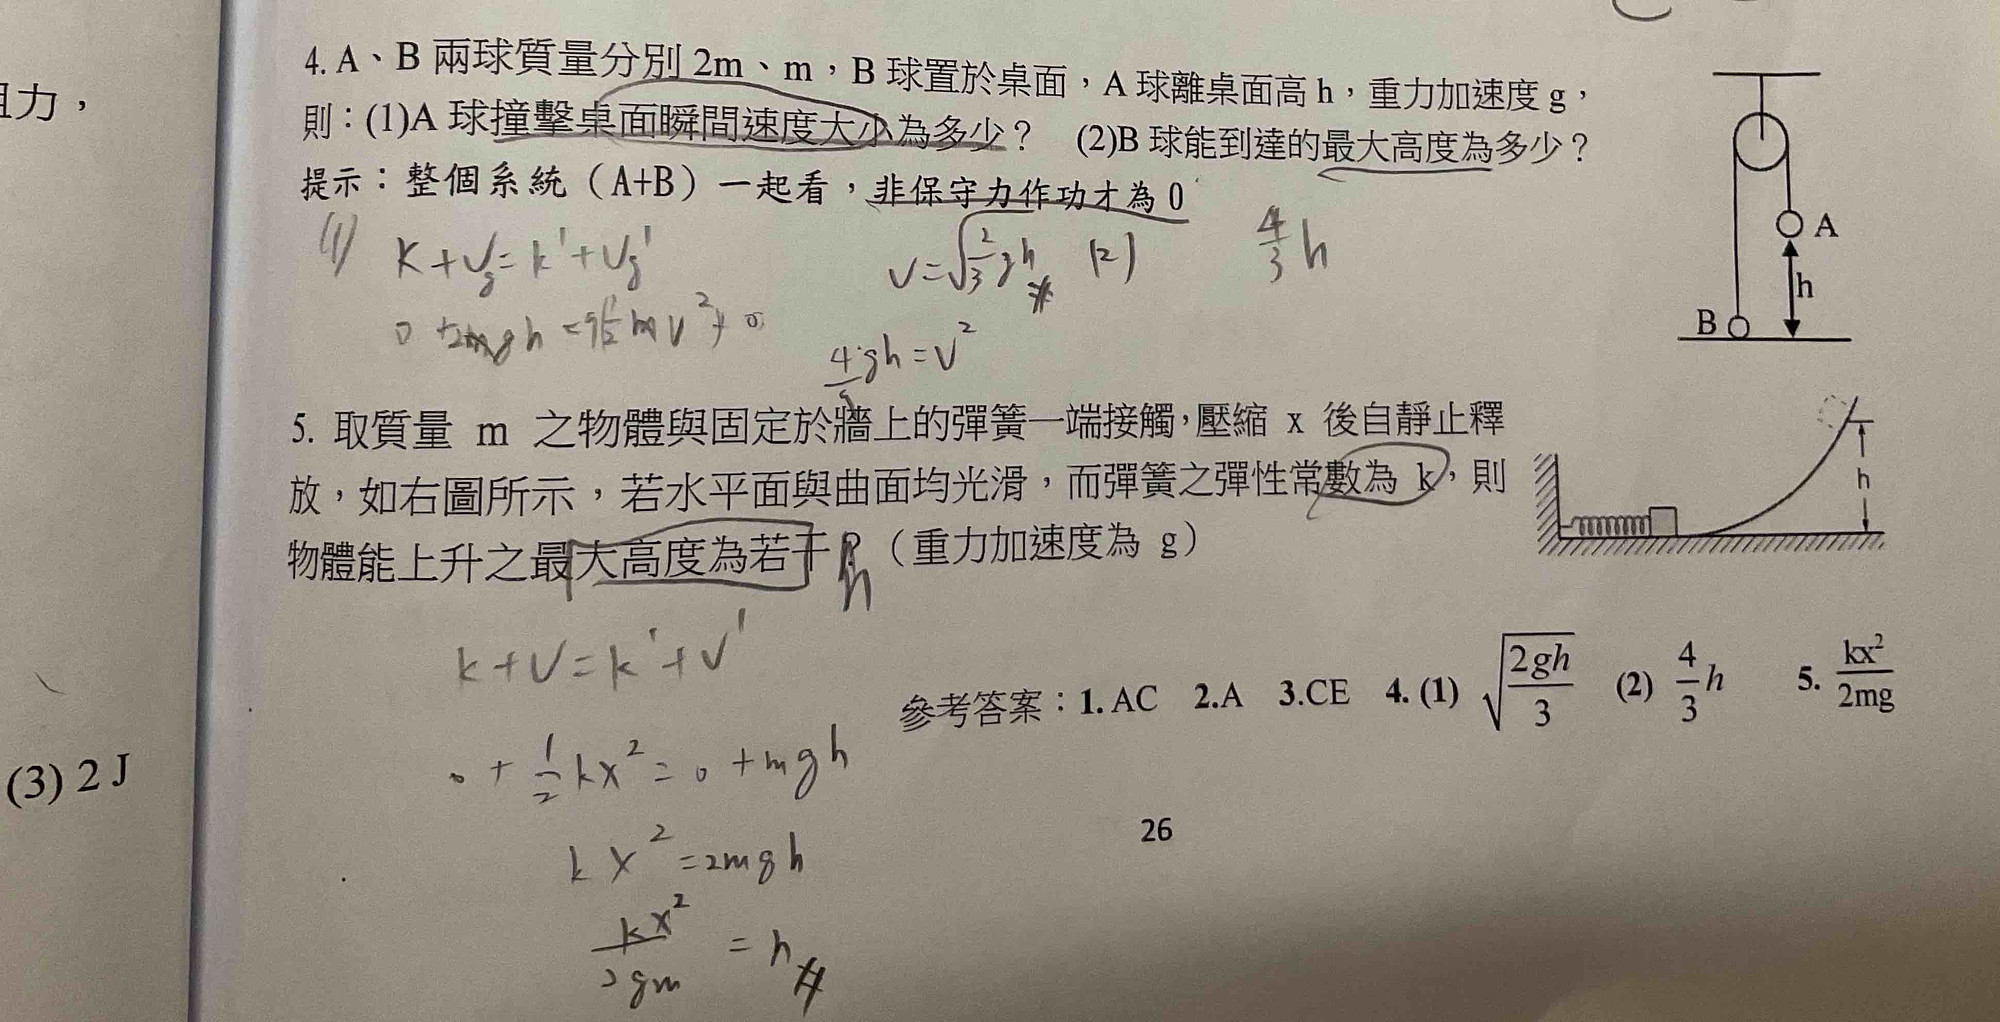 阻力，
(3) 2 J
4. A、B 兩球質量分別 2m、m，B 球置於桌面，A 球離桌面高 h，重力加速度 g，
則：(1)A 球撞擊桌面瞬間速度大小為多少？ (2)B 球能到達的最大高度為多少？
提示：整個系統（A+B）一起看，非保守力作功才為 0
(1) K + Ug = k' + Ug'
v = √(2/3 gh) (2) 4/3 h
gh = v²
A
h
B
5. 取質量 m 之物體與固定於牆上的彈簧一端接觸，壓縮 x 後自靜止釋
放，如右圖所示，若水平面與曲面均光滑，而彈簧之彈性常數為 k，則
物體能上升之最大高度為若干？（重力加速度為 g）
h
h
k + U = k' + U'
0 + 1/2 kx² = 0 + mgh
kx² = 2mgh
kx²/2gm = h
參考答案：1. AC 2.A 3.CE 4. (1) √(2gh/3) (2) 4/3 h 5. kx²/2mg
26